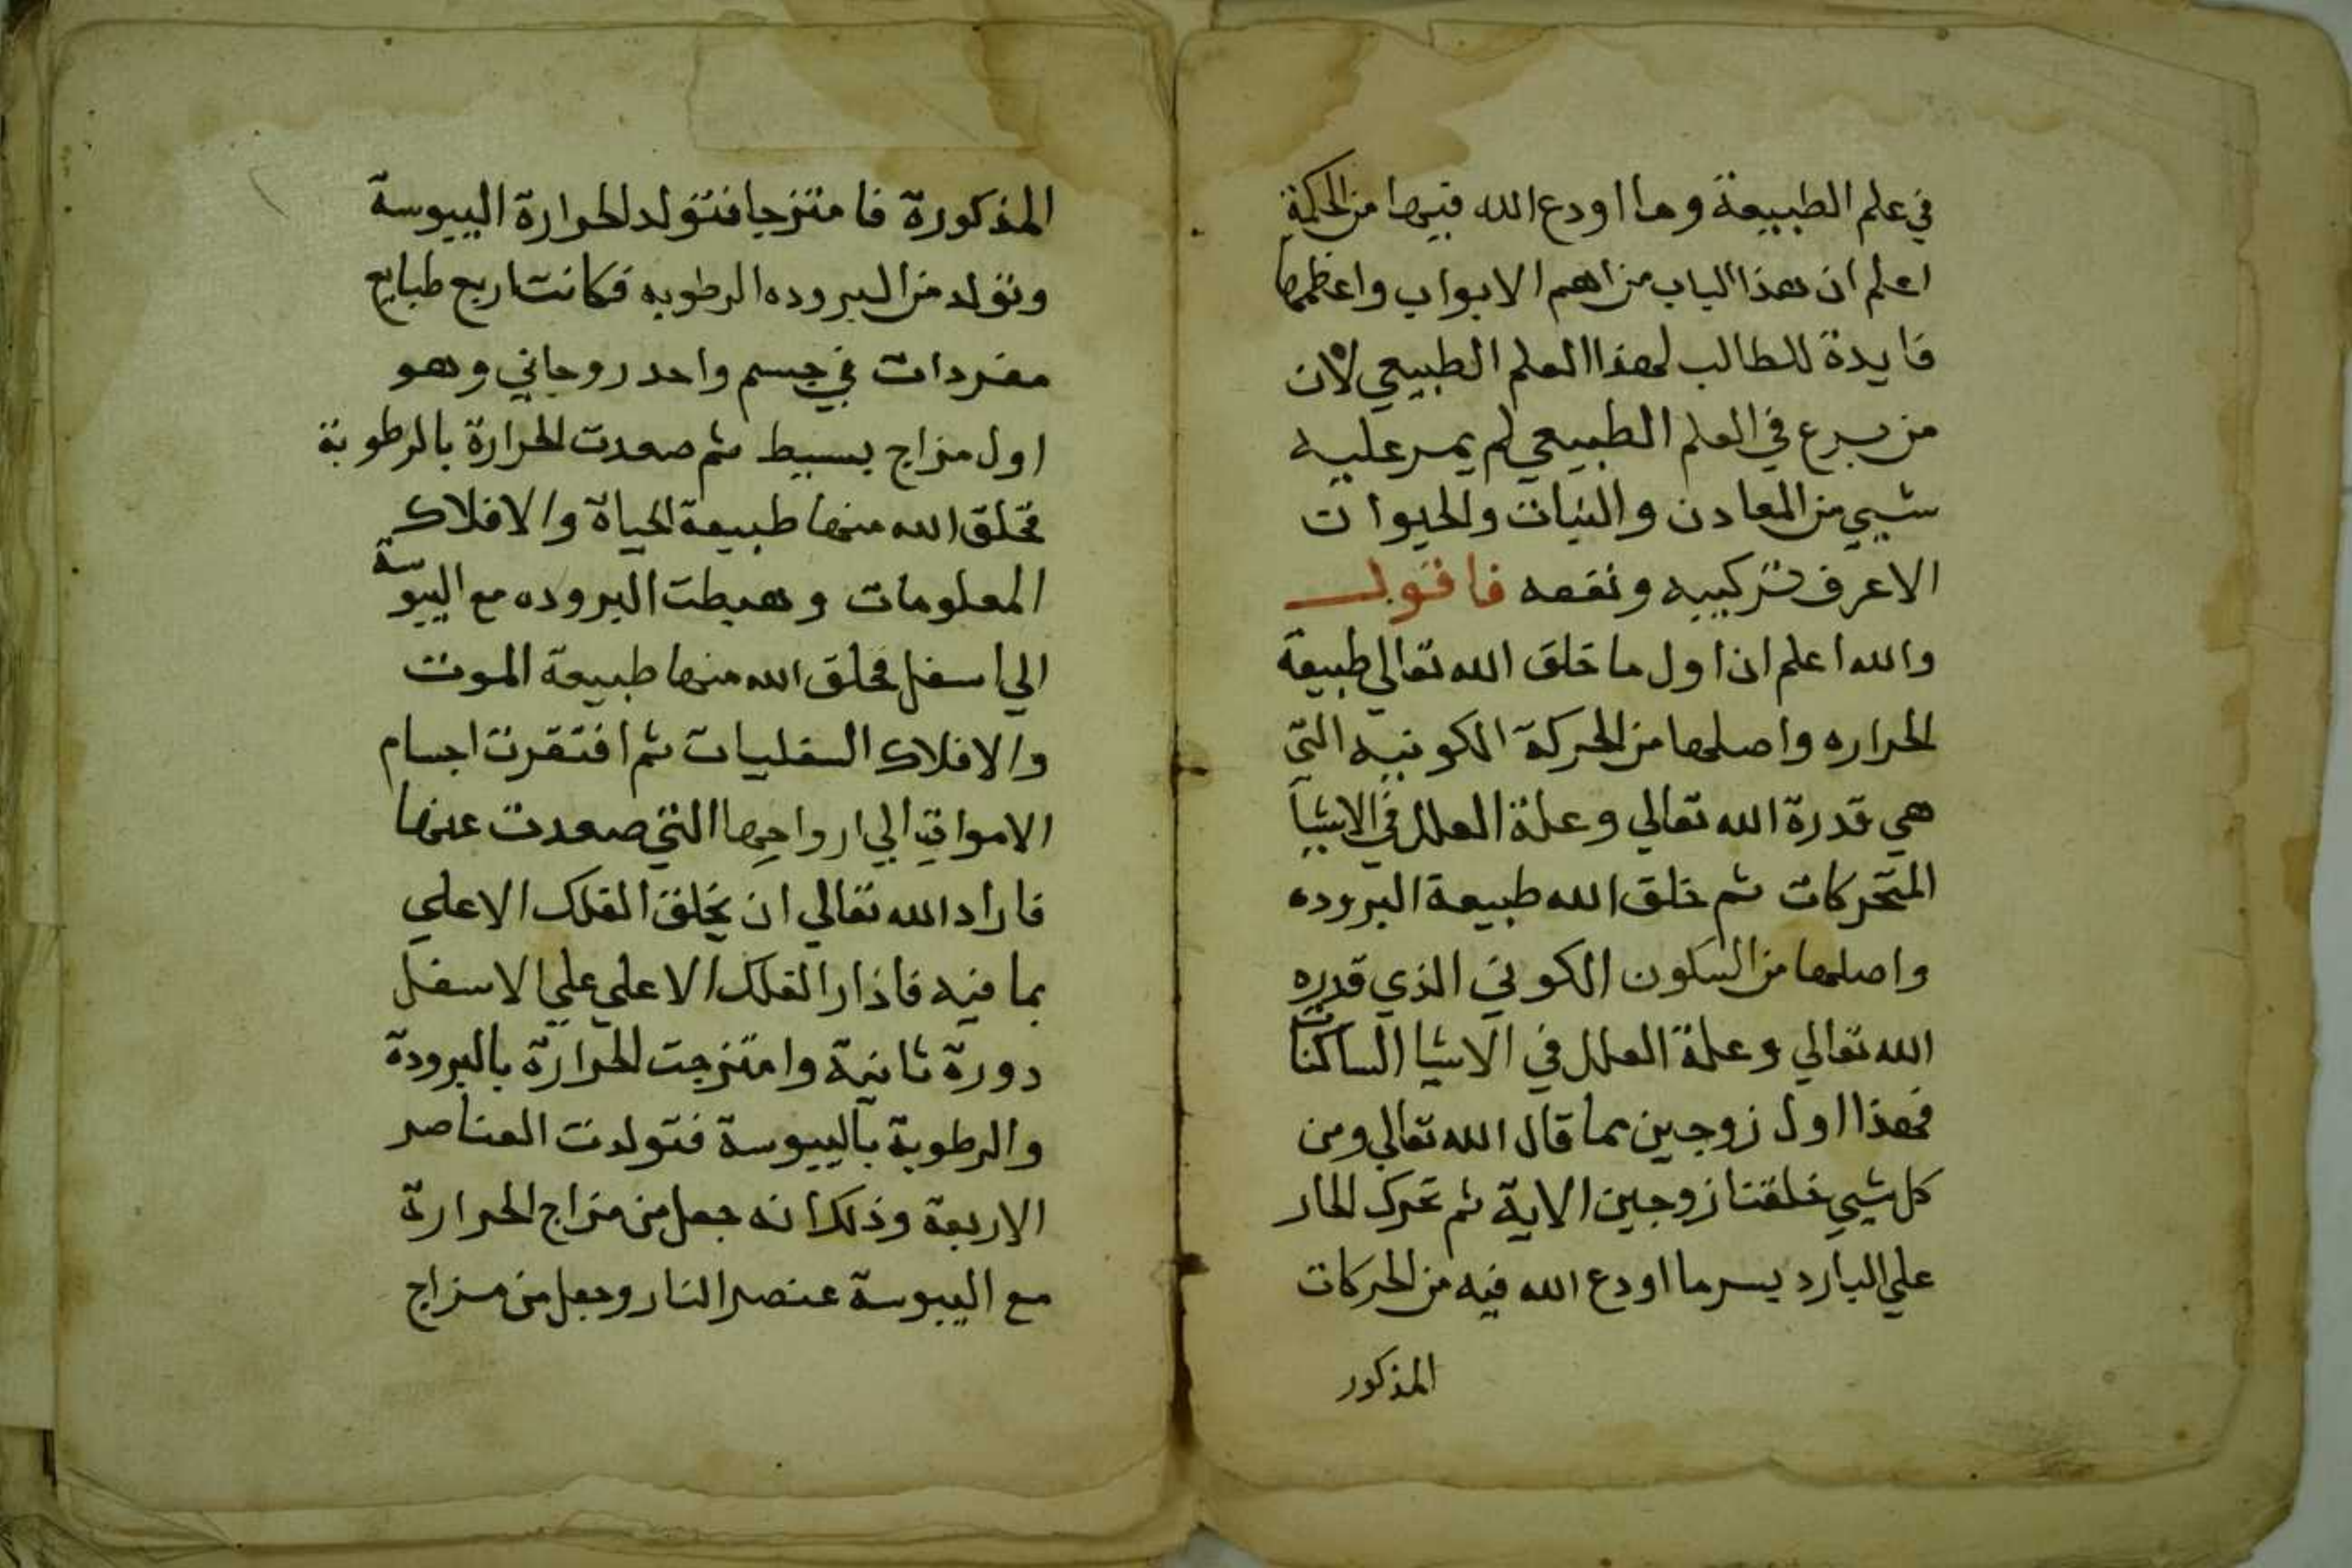 في علم الطبيعة وما اودع الله فيها من الحكمة
اعلم ان هذا الباب من اهم الابواب واعظمها
فايدة للطالب لهذا العلم الطبيعي لان
من برع في العلم الطبيعي لم يمر عليه
شيي من المعادن والنبات والحيوات
الاعرف تركيبه ونفعه فاقول
والله اعلم ان اول ما خلق الله تعالي طبيعة
الحراره واصلها من الحركة الكونيه التي
هي قدرة الله تعالي وعلة العلل في الاشيا
المتحركات ثم خلق الله طبيعة البروده
واصلها من السكون الكوني الذي قدره
الله تعالي وعلة العلل في الاشيا الساكنات
فهذا اول زوجين كما قال الله تعالي ومن
كل شيي خلقنا زوجين الاية ثم تحرك الحار
علي البارد بسر ما اودع الله فيه من الحركات
المذكور
المذكورة فامتزجا فتولد الحرارة اليبوسة
وتولد من البروده الرطوبه فكانت اربع طبايع
مفردات في جسم واحد روحاني وهو
اول مزاج بسيط ثم صعدت الحرارة بالرطوبة
فخلق الله منها طبيعة الحياة والافلاك
المعلومات وهبطت البروده مع اليبوسة
الي اسفل فخلق الله منها طبيعة الموت
والافلاك السفليات ثم افتقرت اجسام
الاموات الي ارواحها التي صعدت عنها
فاراد الله تعالي ان يخلق الفلك الاعلي
بما فيه فاذار الفلك الاعلي علي الاسفل
دورة ثانية وامتزجت الحرارة بالبرودة
والرطوبة باليبوسة فتولدت العناصر
الاربعة وذلك انه جعل من مزاج الحرارة
مع اليبوسة عنصر النار وجعل من مزاج